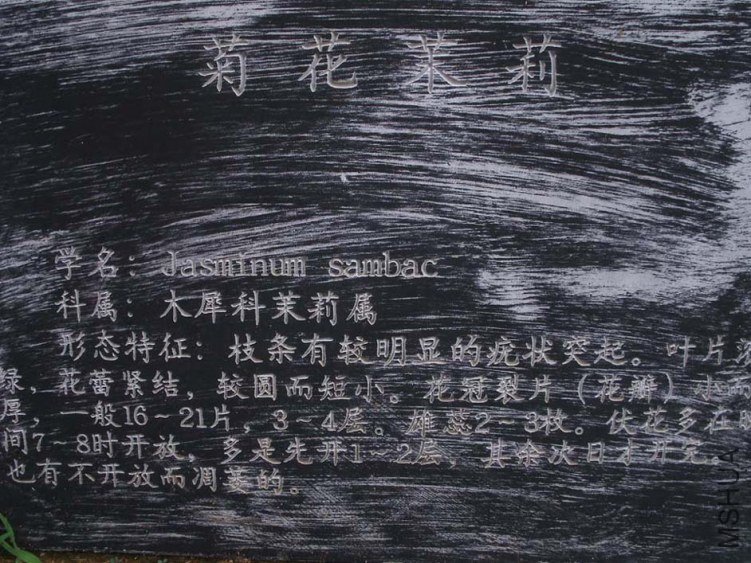 菊花茉莉
学名：Jasminum sambac
科属：木犀科茉莉属
形态特征：枝条有较明显的疣状突起。叶片
绿，花蕾紧结，较圆而短小。花冠裂片（花瓣）小
厚，一般16～21片，3～4层。雄蕊2～3枚。伏花多在
间7～8时开放，多是先开1～2层，其余次日才开完。
也有不开放而凋萎的。
MSHUA